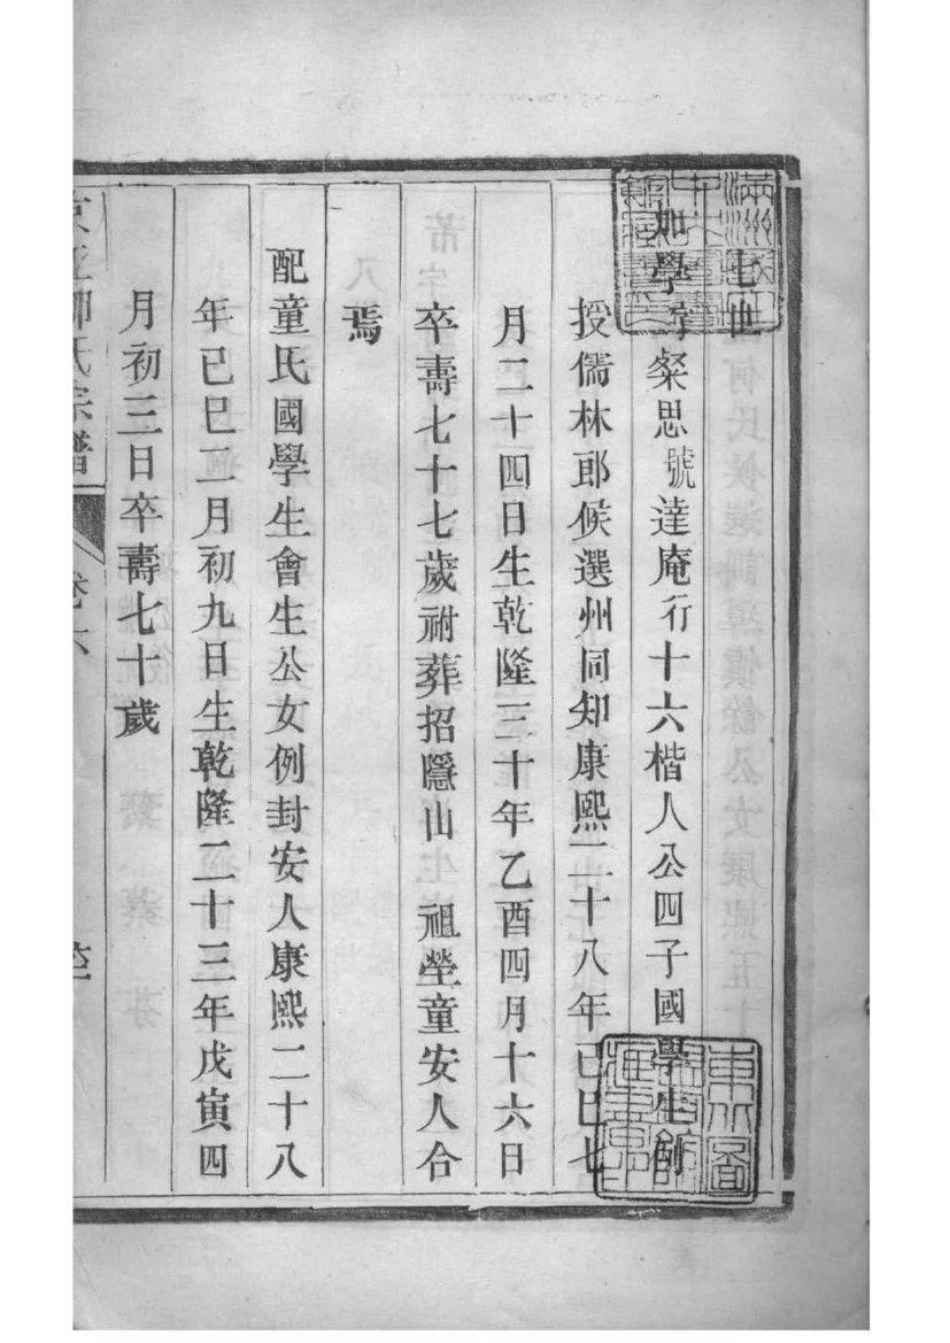 七世
如學字粲思號達庵行十六楷人公四子國學生例
授儒林郎候選州同知康熙二十八年己巳七
月二十四日生乾隆三十年乙酉四月十六日
卒壽七十七歲祔葬招隱山祖塋童安人合
焉
配童氏國學生會生公女例封安人康熙二十八
年已巳二月初九日生乾隆二十三年戊寅四
月初三日卒壽七十歲
氏宗譜
卷六